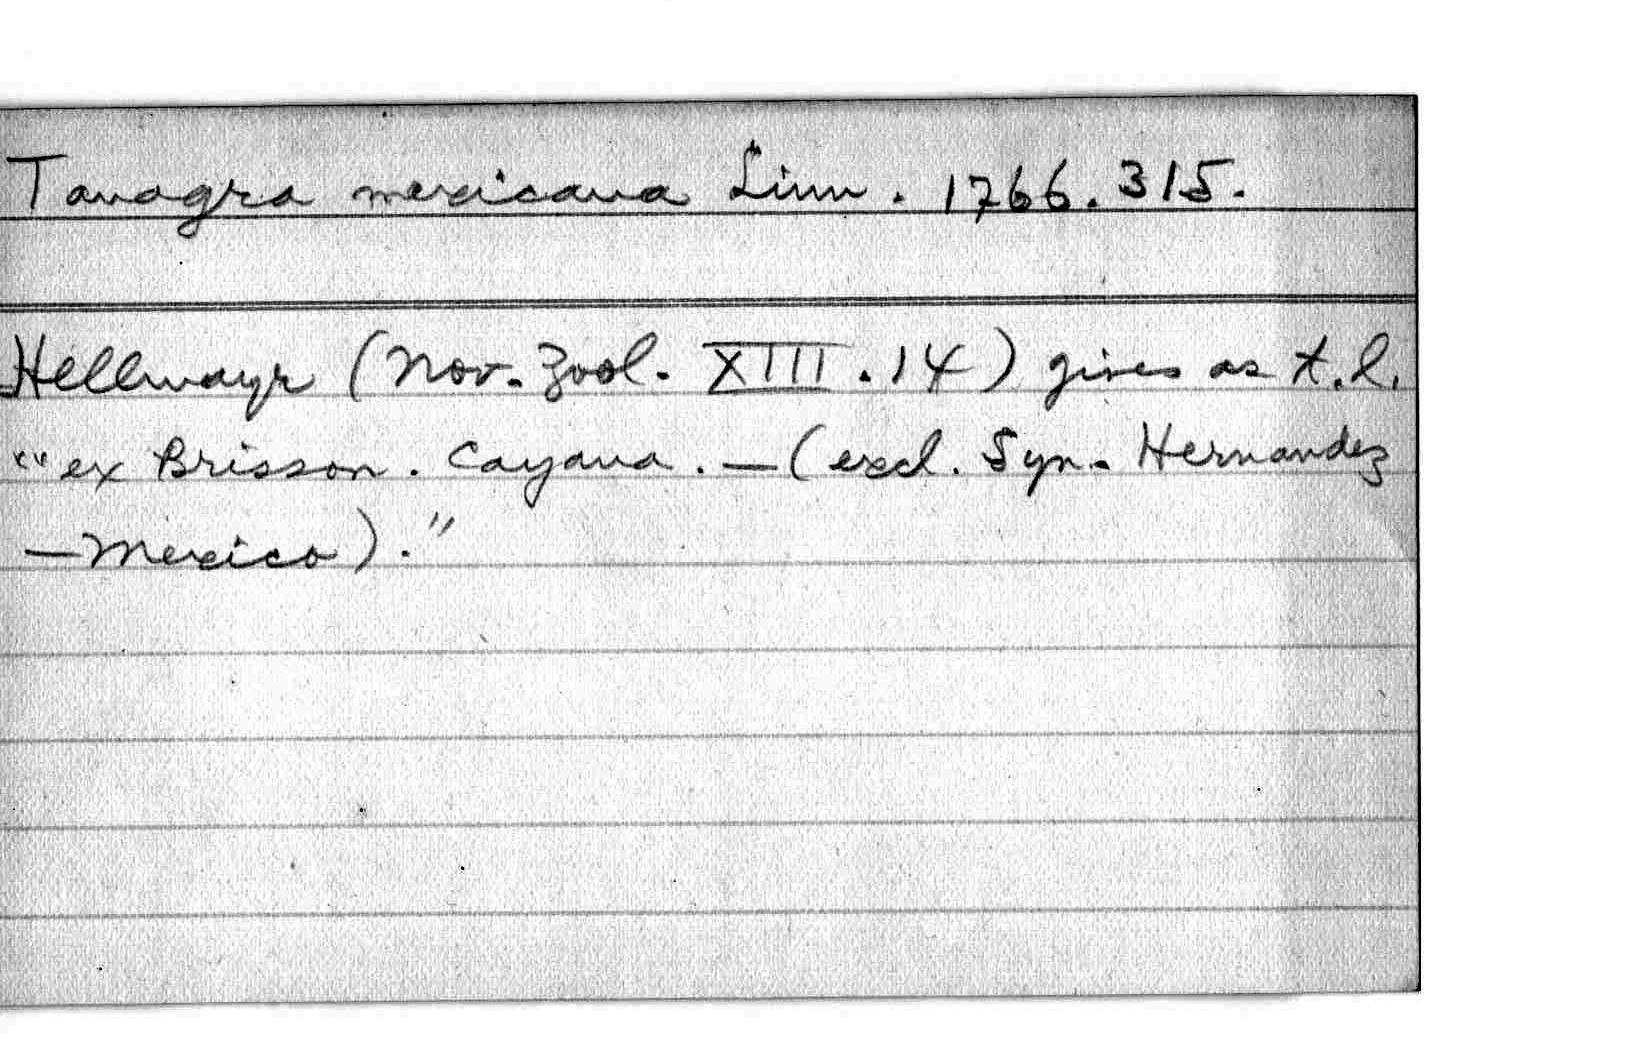 Tanagra mexicana Linn. 1766.315.
Hellmayr (Nov. Zool. XIII.14) gives as t.l.
"ex Brisson. Cayana. — (excl. Syn. Hernandez
— Mexico)."